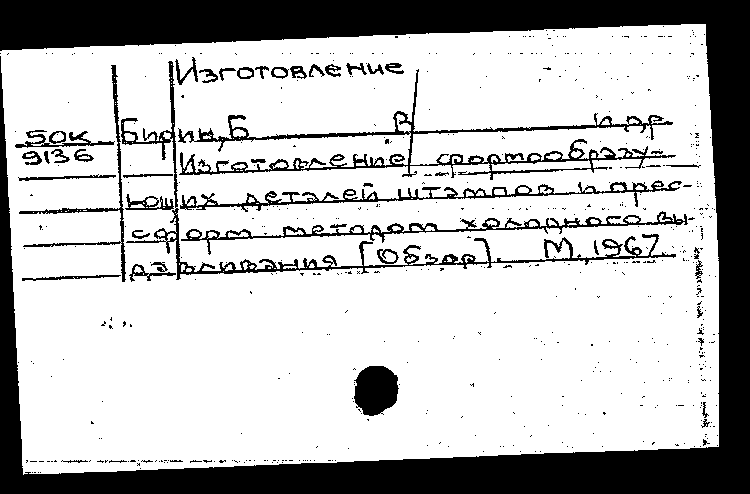 Изготовление
50К Бирин, Б В и др
9136 Изготовление формообразу-
ющих деталей штампов и прес-
сформ методом холодного вы-
давливания [Обзор]. М., 1967